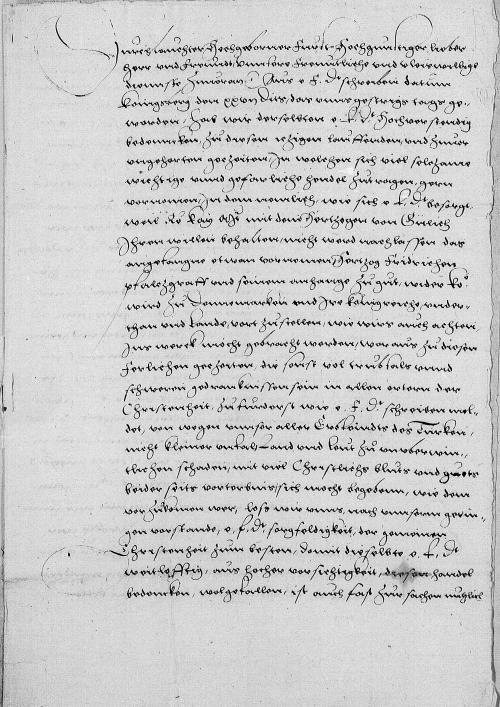 Durchlauchter Hochgeborner Furst, Hochgunstiger lieber
Herr und Freundt, Unsere Freuntliche und vleiswillige
dienste Zuvoran, Aus e. f. dt schreiben datum
Konigsberg den xxvii dits, das unns gestrigs tags ge-
worden, Hab wir derselbten e. f. dt Hochverstendig
bedencken, Zu diesen itzigen lauffenden, und Zuvor
ungehorten geczeiten, In welchen sich viel selczame
wichtige unnd geferliche hendel Zutragen, gern
vornomen, In dem nemlich, wie sich e. f. dt besorgt,
weil Ro Kay Mt mit dem Hertzogen von Gulich
Ihren willen behalten, nicht werd nachlassen das
angefangne etwan vornomen, Hertzog Friderichen
pfaltzgraff und seinem anhange Zu gut, wider ko
wird Zu Dennemarken und Ire konigreiche, under-
than und Lande, vort Zustellen, wie wirs auch achten
Ins werck mocht gebracht werden, woraus Zu diesen
ferlichen geczeiten, die sonst vol trubsals unnd
schweren gedrancknussen sein in allen orten der
Christenheit, Zufurderst wie e. f. dt schreiben mel-
det, von wegen unser aller Erbfeindts des Turcken,
nicht kleiner unfal, Land und leut Zu unverwin-
tlichen schaden, mit viel Christlichs bluts und guets
beider seits vorterbnis, sich mocht begebenn, wie dem
vor Zukomen wer, lose wir unns, nach unserm gerin-
gen vorstande, e. f. dt sorgfeldigkeit, der gemeinen
Christenheit Zum besten, domit dieselbte e. f. dt
weitlefftig, aus hocher vorsichtigkeit, diesen handel
bedencken, wolgefallen, ist auch fast Zur sachen nuczlich